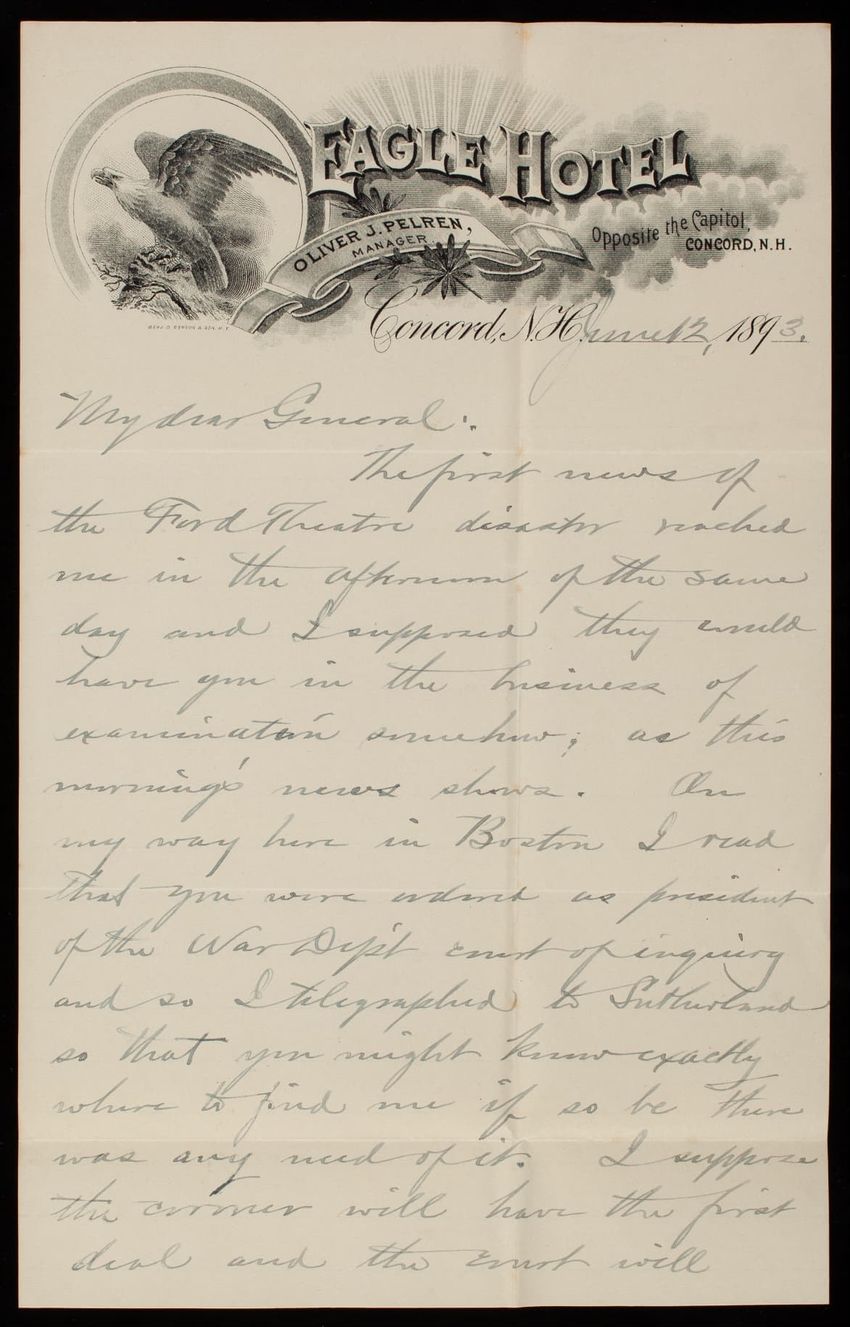 EAGLE HOTEL
OLIVER J. PELREN,
MANAGER
Opposite the Capitol,
CONCORD, N.H.
Concord, N.H. June 12, 1893.
My dear General:
The first news of
the Ford Theatre disaster reached
me in the afternoon of the same
day and I supposed they would
have you in the business of
examination somehow; as this
morning's news shows. On
my way here in Boston I read
that you were ordered as president
of the War Dep't court of inquiry
and so I telegraphed to Sutherland
so that you might know exactly
where to find me if so be there
was any need of it. I suppose
the coroner will have the first
deal and the court will